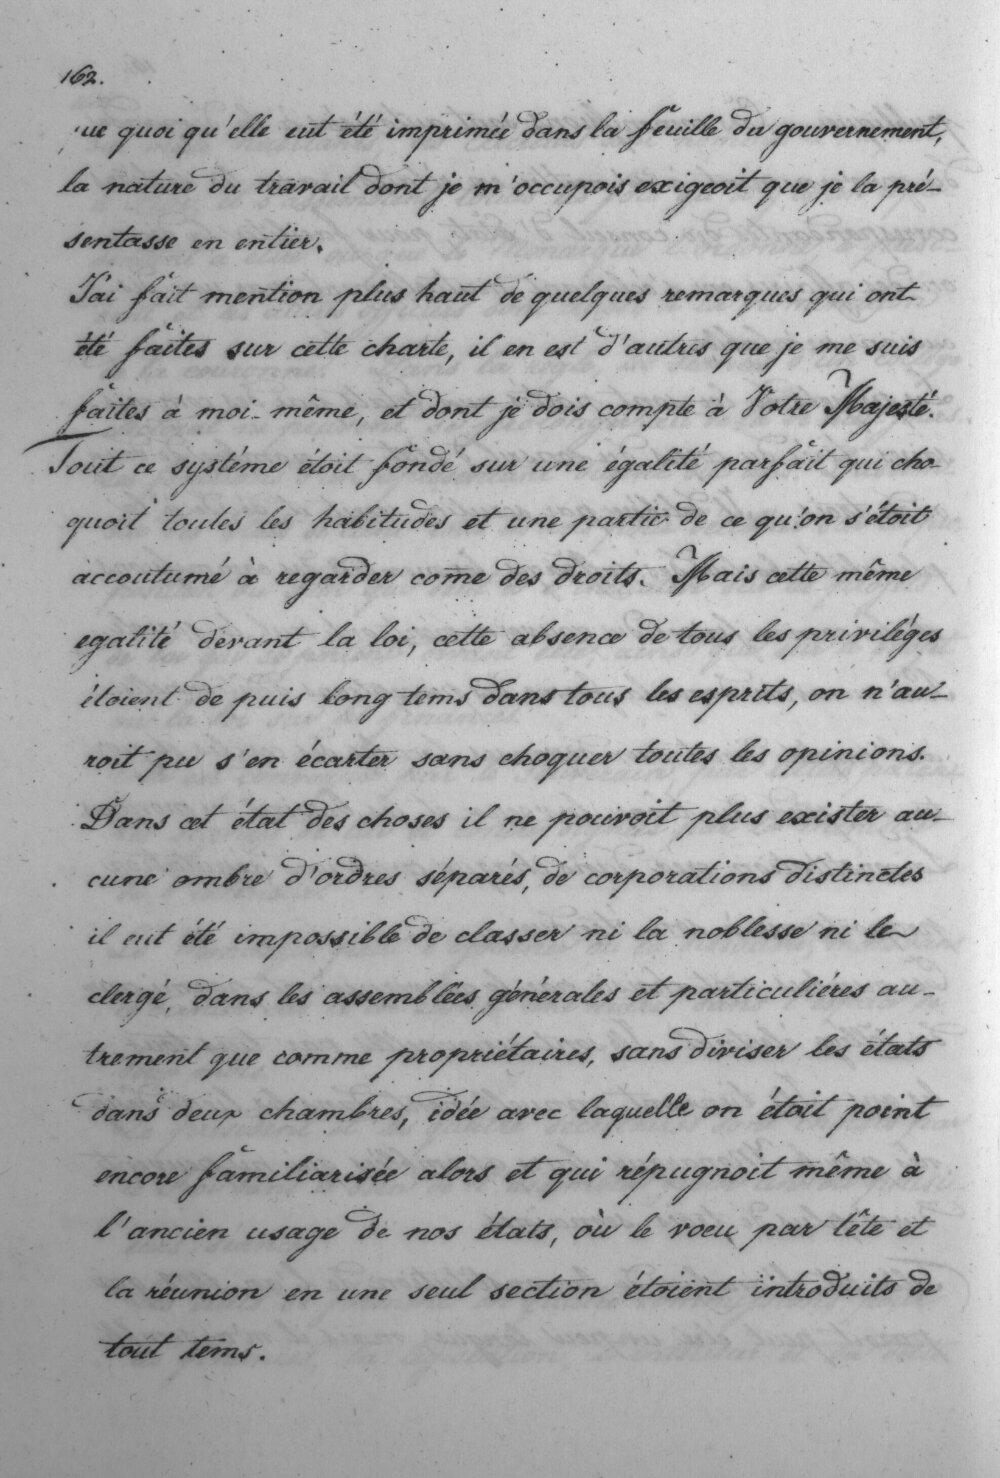 162.
que quoi qu'elle eut été imprimée dans la feuille du gouvernement,
la nature du travail dont je m'occupois exigeoit que je la pré-
sentasse en entier.
J'ai fait mention plus haut de quelques remarques qui ont
été faites sur cette charte, il en est d'autres que je me suis
faites à moi-même, et dont je dois compte à Votre Majesté.
Tout ce systéme étoit fondé sur une égalité parfait qui cho-
quoit toutes les habitudes et une partie de ce qu'on s'étoit
accoutumé à regarder come des droits. Mais cette même
egalité devant la loi, cette absence de tous les priviléges
étoient de puis long tems dans tous les esprits, on n'au-
roit pu s'en écarter sans choquer toutes les opinions.
Dans cet état des choses il ne pouvoit plus exister au-
cune ombre d'ordres séparés, de corporations distinctes
il eut été impossible de classer ni la noblesse ni le
clergé, dans les assemblées générales et particuliéres au-
trement que comme propriétaires, sans diviser les états
dans deux chambres, idée avec laquelle on étoit point
encore familiarisée alors et qui répugnoit même à
l'ancien usage de nos états, où le voeu par tête et
la réunion en une seul section étoient introduits de
tout tems.